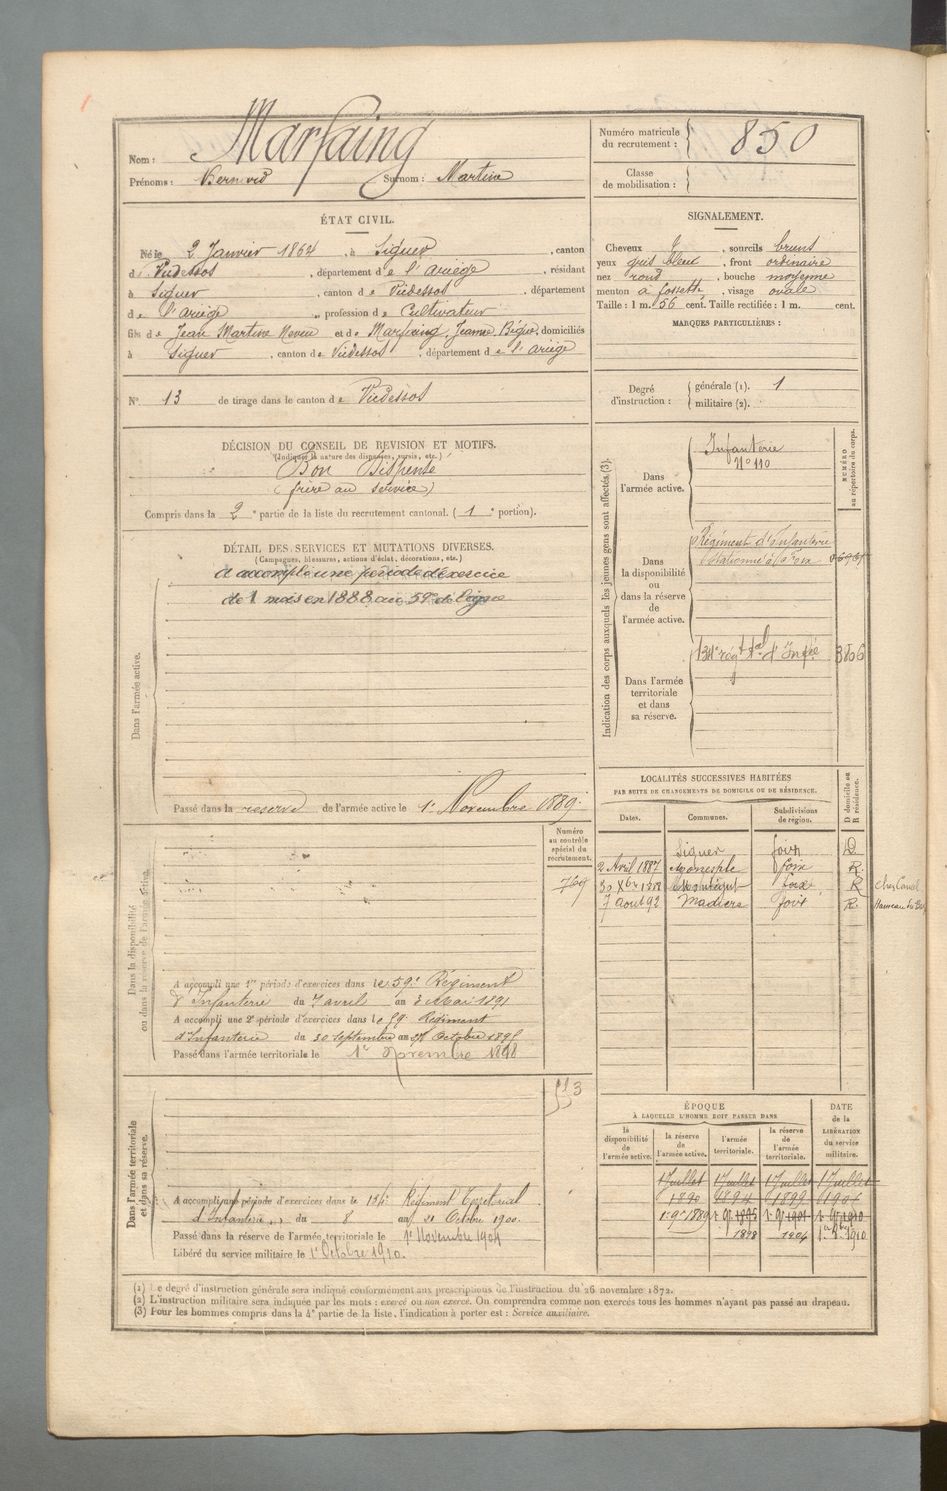 Nom : Marfaing
Prénoms : Bernard Surnom : Martine
Numéro matricule du recrutement : 850
Classe de mobilisation :
ÉTAT CIVIL.
Né le 2 Janvier 1864, à Siguer, canton
d Vicdessos, département d e l'Ariège, résidant
à Siguer, canton d e Vicdessos, département
d e l'Ariège, profession d e Cultivateur
fils d e Jean Martine Neveu et d e Marfaing, Jeanne, domiciliés
à Siguer, canton d e Vicdessos, département d e l'Ariège
N° 13 de tirage dans le canton d e Vicdessos
SIGNALEMENT.
Cheveux, sourcils bruns
yeux gris bleu, front ordinaire
nez rond, bouche moyenne
menton à fossette, visage ovale
Taille : 1 m. 56 cent. Taille rectifiée : 1 m. cent.
MARQUES PARTICULIÈRES :
Degré d'instruction : générale (1). 1
militaire (2).
DÉCISION DU CONSEIL DE REVISION ET MOTIFS.
(Indiquer la nature des dispenses, sursis, etc.)
Bon Dispensé
(frère au service)
Compris dans la 2e partie de la liste du recrutement cantonal. (1e portion).
DÉTAIL DES SERVICES ET MUTATIONS DIVERSES.
(Campagnes, blessures, actions d'éclat, décorations, etc.)
Dans l'armée active.
A accompli une période d'exercice
de 1 mois en 1888 au 59e de ligne
Passé dans la reserve de l'armée active le 1er Novembre 1889.
Numéro au contrôle spécial du recrutement.
769
Dans la disponibilité ou dans la réserve de l'armée active.
A accompli une 1re période d'exercices dans le 59e Régiment
d'Infanterie du 7 avril au 4 Mai 1891
A accompli une 2e période d'exercices dans le 59e Régiment
d'Infanterie du 30 septembre au 27 Octobre 1895
Passé dans l'armée territoriale le 1er Novembre 1898
Dans l'armée territoriale et dans sa réserve.
A accompli une période d'exercices dans le 134e Régiment Territorial
d'Infanterie du 8 au 21 Octobre 1900.
Passé dans la réserve de l'armée territoriale le 1er Novembre 1904
Libéré du service militaire le 1er Octobre 1910.
Indication des corps auxquels les jeunes gens sont affectés (3).
NUMÉRO au répertoire du corps.
Dans l'armée active.
Infanterie
N° 110
Dans la disponibilité ou dans la réserve de l'armée active.
Régiment d'Infanterie
Stationné à
Dans l'armée territoriale et dans sa réserve.
134e régt tal d'Infie 3806
LOCALITÉS SUCCESSIVES HABITÉES
PAR SUITE DE CHANGEMENTS DE DOMICILE OU DE RÉSIDENCE.
D domicile ou R résidence.
Dates. Communes. Subdivisions de région.
Siguer foix D
2 Avril 1887 foix R.
30 Xbre 1888 Montégut foix R
7 août 92 Madière foix R.
ÉPOQUE
À LAQUELLE L'HOMME DOIT PASSER DANS
DATE de la LIBÉRATION du service militaire.
la disponibilité de l'armée active. la réserve de l'armée active. l'armée territoriale. la réserve de l'armée territoriale.
1 Juillet 1 Juillet 1 Juillet 1 Juillet
1890 1894 1899 1904
1er 9bre 1889 1er 9bre 1895 1er 9bre 1901 1er 9bre 1910
1898 1904 1910
(1) Le degré d'instruction générale sera indiqué conformément aux prescriptions de l'instruction du 26 novembre 1872.
(2) L'instruction militaire sera indiquée par les mots : exercé ou non exercé. On comprendra comme non exercés tous les hommes n'ayant pas passé au drapeau.
(3) Pour les hommes compris dans la 4e partie de la liste, l'indication à porter est : Service auxiliaire.